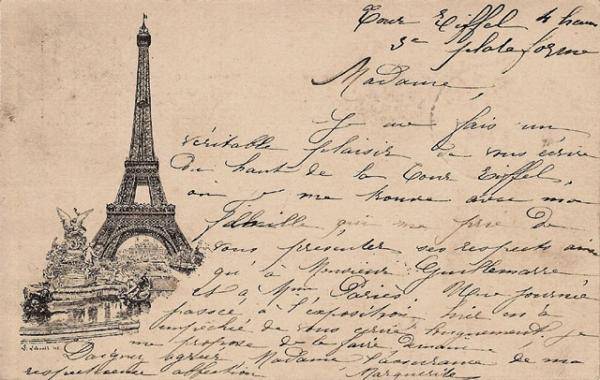 Tour Eiffel 4 heures
3e plateforme
Madame,
Je me fais un
véritable plaisir de vous écrire
du haut de la Tour Eiffel,
où je me trouve avec ma
famille qui me prie de
vous présenter ses respects ainsi
qu'à Monsieur Guillemarre
et à Mme Une journée
passée à l'exposition hier m'a
empêché de vous écrire longuement. Je
me propose de le faire demain
Daignez agréer Madame l'assurance de ma
respectueuse affection Marguerite